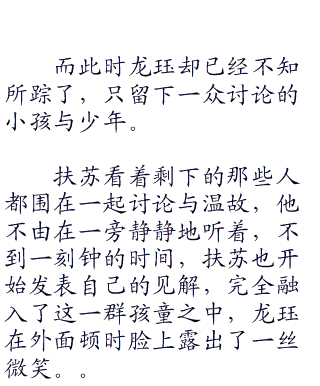 而此时龙珏却已经不知
所踪了，只留下一众讨论的
小孩与少年。
扶苏看着剩下的那些人
都围在一起讨论与温故，他
不由在一旁静静地听着，不
到一刻钟的时间，扶苏也开
始发表自己的见解，完全融
入了这一群孩童之中，龙珏
在外面顿时脸上露出了一丝
微笑。。